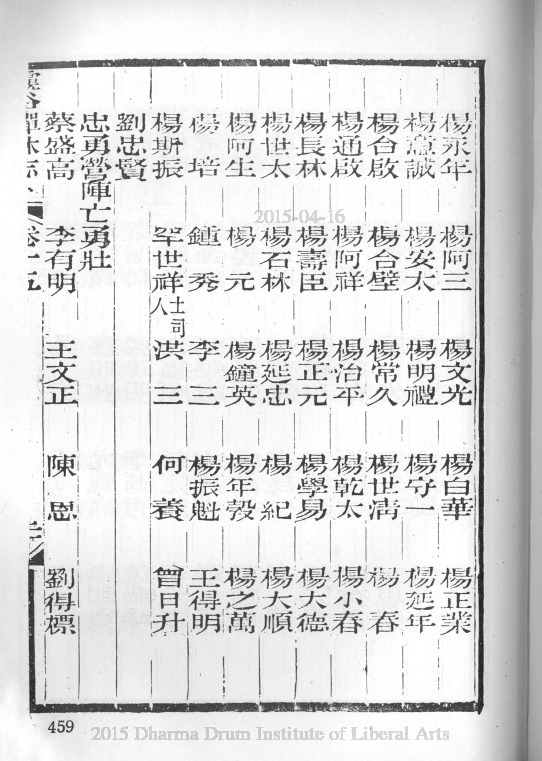 楊永年 楊阿三 楊文光 楊白華 楊正業
楊意誠 楊安太 楊明禮 楊守一 楊延年
楊台啟 楊合璧 楊常久 楊世清 楊春
楊通啟 楊阿祥 楊治平 楊乾太 楊小春
楊長林 楊壽臣 楊正元 楊學易 楊大德
楊世太 楊石林 楊延忠 楊紀 楊大順
楊阿生 楊元 楊鐘英 楊年穀 楊之萬
楊培 鍾秀 李三 楊振魁 王得明
楊斯振 罕世祥土司人 洪三 何養 曾日升
劉忠賢
忠勇營陣亡勇壯
蔡盛高 李有明 王文正 陳恩 劉得標
卷十五
459
2015-04-16
2015 Dharma Drum Institute of Liberal Arts